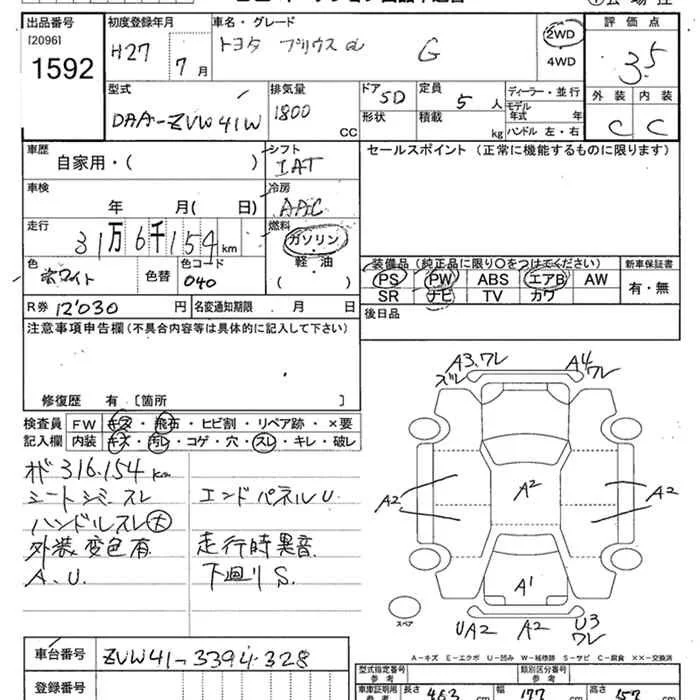 出品番号 初度登録年月 車名・グレード 評価点
[2096] H27 7月 トヨタ プリウスα G 2WD 3.5
1592 4WD
外装 内装
型式 排気量 ドア 5D 定員 5人 ディーラー・並行
DAA-ZVW41W 1800CC 形状 積載 kg モデル年式 年
ハンドル 左・右 C C
車歴 シフト セールスポイント (正常に機能するものに限ります)
自家用・( ) IAT
車検 冷房
年 月( 日) AAC
走行 燃料
31万6千154km ガソリン
軽・油
( )
色 色替 色コード 装備品 (純正品に限り○をつけてください) 新車保証書
ホワイト 040 PS PW ABS エアB AW 有・無
SR ナビ TV カワ
R券 12'030円 名変通知期限 月 日 後日品
注意事項申告欄 (不具合内容等は具体的に記入して下さい)
修復歴 有 [箇所 ]
検査員 FW キズ・飛石・ヒビ割・リペア跡・×要
記入欄 内装 キズ・汚レ・コゲ・穴・スレ・キレ・破レ
316.154km
シートシミ スレ エンドパネルU
ハンドルスレ大
外装変色有 走行時異音
A.U. 下廻りS.
A3.ワレ A4
ズレ ワレ
A2 A2 A2
A1
スペア UA2 A2 U3
ワレ
A-キズ E-エクボ U-凹み W-補修跡 S-サビ C-腐食 ××-交換済
車台番号 ZVW41-3394328
登録番号
型式指定番号 類別区分番号
参考 参考
車庫証明用 長さ 463 幅 177 高さ 157
参考